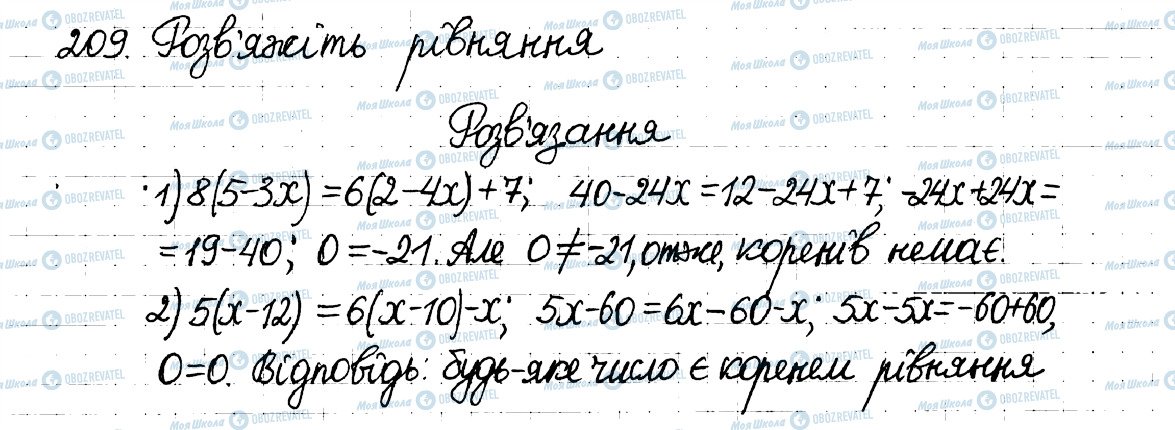 209. Розв'яжіть рівняння
Розв'язання
1) 8(5-3x) = 6(2-4x)+7; 40-24x = 12-24x+7; -24x+24x =
= 19-40; 0 = -21. Але 0 ≠ -21, отже, коренів немає.
2) 5(x-12) = 6(x-10)-x; 5x-60 = 6x-60-x; 5x-5x = -60+60,
0=0. Відповідь: будь-яке число є коренем рівняння